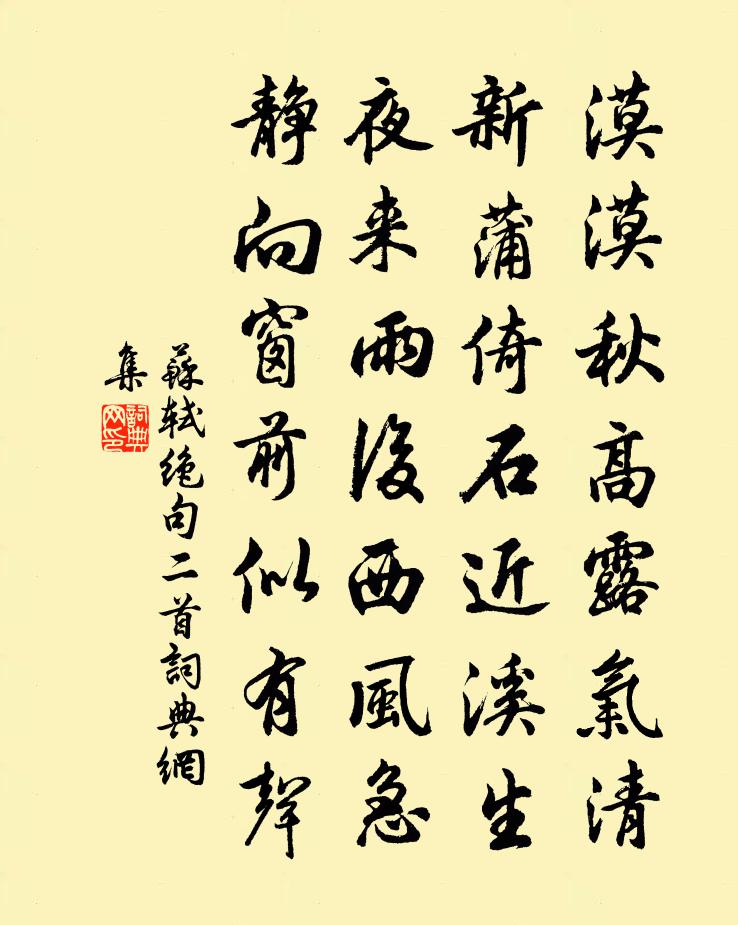 漠漠秋高露氣清
新蒲倚石近溪生
夜来雨後西風急
靜向窗前似有聲
蘇軾绝句二首詞典網
集
詞典
网印